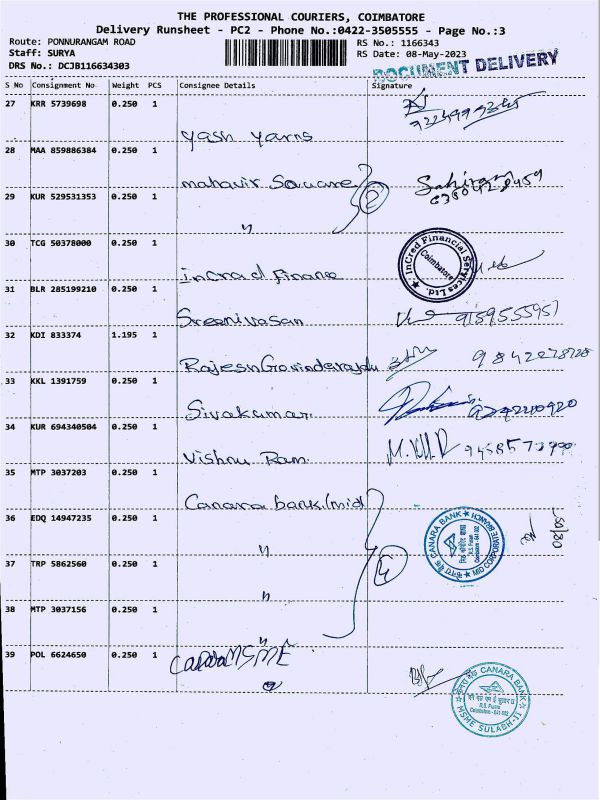 THE PROFESSIONAL COURIERS, COIMBATORE
Delivery Runsheet - PC2 - Phone No.:0422-3505555 - Page No.:3
Route: PONNURANGAM ROAD RS No.: 1166343
Staff: SURYA RS Date: 08-May-2023
DRS No.: DCJB116634303
DOCUMENT DELIVERY
S No Consignment No Weight PCS Consignee Details Signature
27 KRR 5739698 0.250 1
Yash Yarns
28 MAA 859886384 0.250 1
mahavir Square
29 KUR 529531353 0.250 1
" 2
30 TCG 50378000 0.250 1
incrad Finance
InCred Financial Services Ltd. Coimbatore
31 BLR 285199210 0.250 1
Sreenivasan
32 KDI 833374 1.195 1
Rajesh
33 KKL 1391759 0.250 1
Sivakumar
34 KUR 694340504 0.250 1
Vishnu Ram
35 MTP 3037203 0.250 1
Canara bank (mid)
36 EDQ 14947235 0.250 1
"
CANARA BANK
MID CORPORATE BRANCH
37 TRP 5862560 0.250 1
" 4
38 MTP 3037156 0.250 1
"
39 POL 6624650 0.250 1
Canara MSME
CANARA BANK
R.S. Puram
Coimbatore - 641 002
MSME SULABH-II